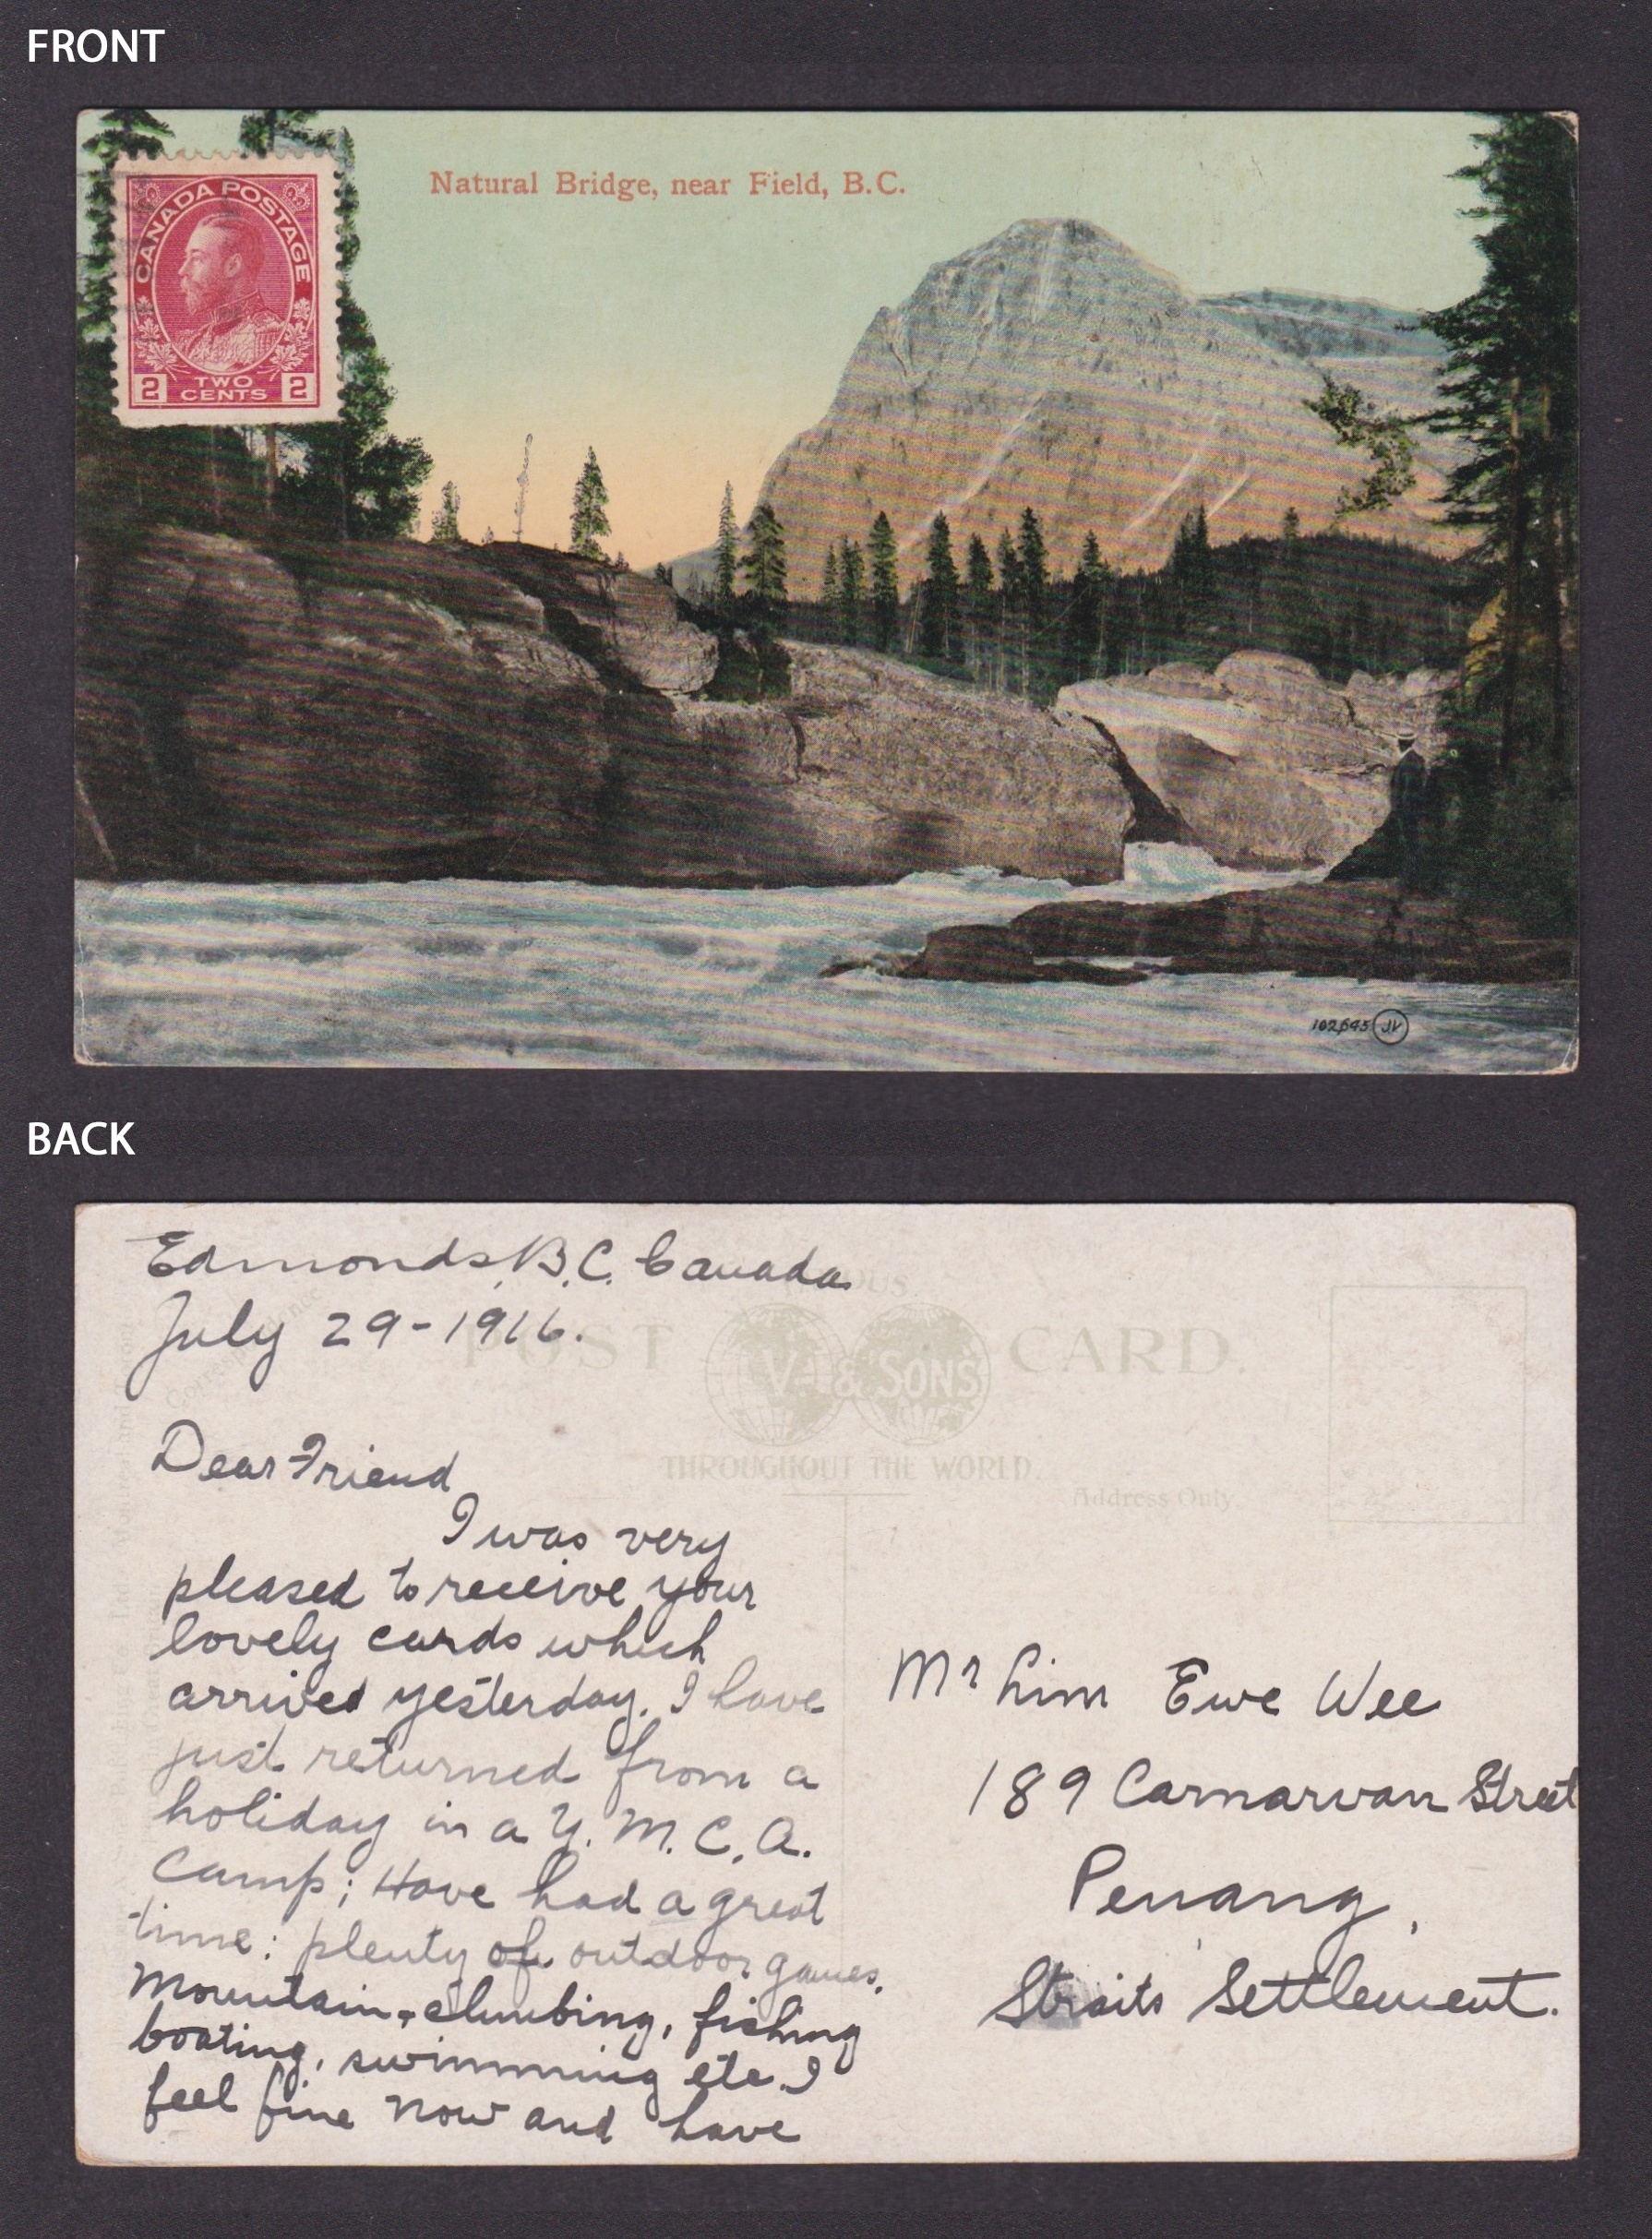 FRONT
CANADA POSTAGE
2 TWO CENTS 2
Natural Bridge, near Field, B.C.
102,645 JV
BACK
Edmonds, B.C. Canada
July 29-1916.
POST CARD.
V. & SONS
THROUGHOUT THE WORLD.
Address Only.
Correspondence
Dear Friend
I was very
pleased to receive your
lovely cards which
arrived yesterday. I have
just returned from a
holiday in a Y.M.C.A.
Camp; Have had a great
time: plenty of outdoor games.
Mountain-climbing, fishing
boating, swimming etc. I
feel fine now and have
Mr Lim Ewe Wee
189 Carnarvan Street
Penang,
Straits Settlement.